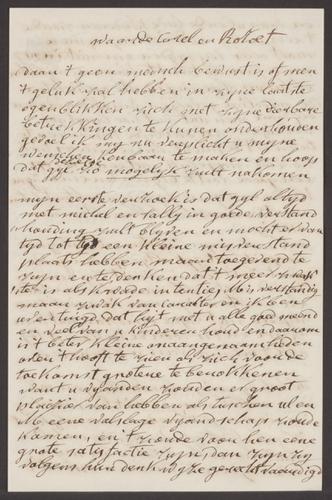 waarde Carel en
daar 't geen mensch bewust is of men
't geluk zal hebben in zijne laatste
ogenblikken zich met zijne dierbare
betrekkingen te kunen onderhouden
gedoel ik my nu verplicht u mijne
wenschen kenbaar te maken en hoop
dat gyl. zo mogelijk zult nakomen
mijn eerste verzoek is dat gyl altyd
met michel en fally in goede verstand
houding zult blyven en mocht er van
tyd tot tyd een kleine misverstand
plaats hebben maar toegevend te
zijn en te denken dat 't meer zwak
is als kwade intentie, M is verstandig
maar zwak van caracter en ik ben
overtuigd dat hij 't met u alle goed meend
en veel van u kinderen houd en daarom
is 't beter kleine onaangenaamheden
over 't hooft te zien als zich voor de
toekomst grotere te berokkenen
want u vyanden zouden er groot
plaizier van hebben als tuschen ul en
M eene valsche vyandschap zoude
komen, en 't zoude voor hen eene
grote satisfactie zijn, dan zijn zy
volgens hun denkwijze gerechtvaardigd